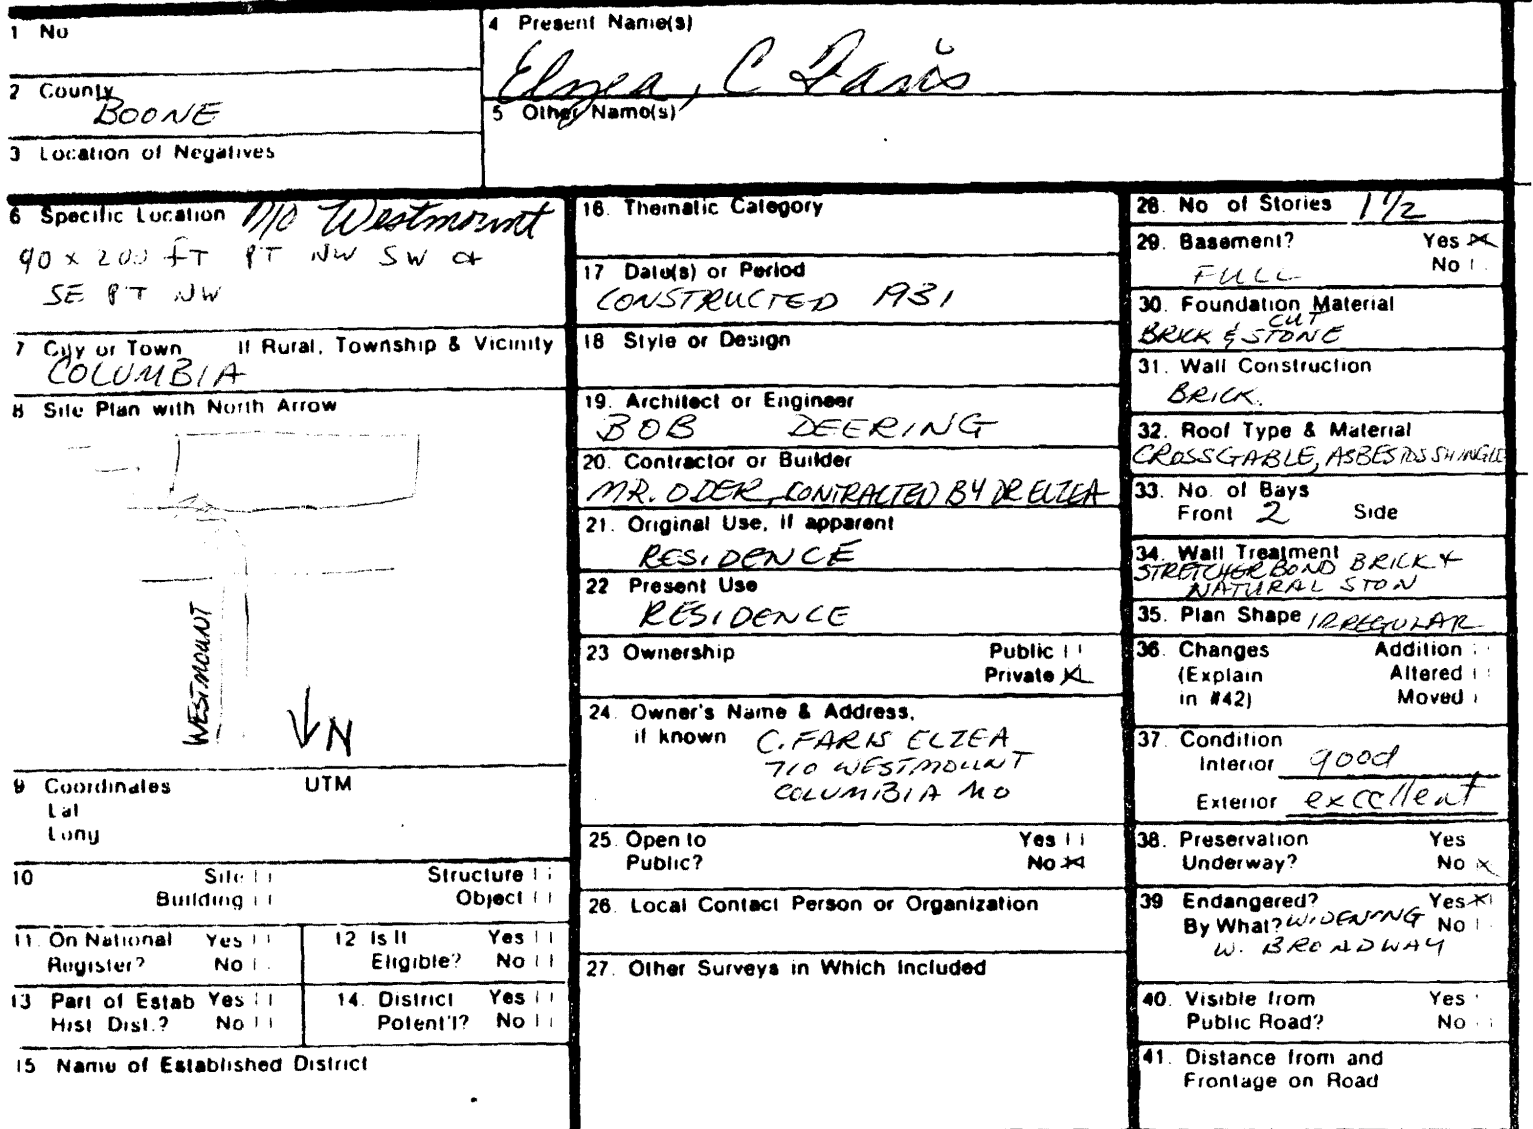 1 No
4 Present Name(s)
Elzea, C Faris
2 County
BOONE
5 Other Name(s)
3 Location of Negatives
6 Specific Location 710 Westmount
90 x 200 FT PT NW SW of
SE PT NW
7 City or Town If Rural, Township & Vicinity
COLUMBIA
8 Site Plan with North Arrow
WESTMOUNT
N
9 Coordinates UTM
Lat
Long
10 Site Structure
Building Object
11. On National Register? Yes No
12 Is It Eligible? Yes No
13 Part of Estab Hist Dist.? Yes No
14. District Potent'l? Yes No
15 Name of Established District
16. Thematic Category
17 Date(s) or Period
CONSTRUCTED 1931
18 Style or Design
19. Architect or Engineer
BOB DEERING
20. Contractor or Builder
MR. ODER, CONTRACTED BY DR ELZEA
21. Original Use, if apparent
RESIDENCE
22 Present Use
RESIDENCE
23 Ownership Public
Private X
24. Owner's Name & Address,
if known C. FARIS ELZEA
710 WESTMOUNT
COLUMBIA MO
25. Open to Yes
Public? No X
26. Local Contact Person or Organization
27. Other Surveys in Which Included
28. No of Stories 1 1/2
29. Basement? Yes X
FULL No
30. Foundation Material
CUT
BRICK & STONE
31. Wall Construction
BRICK.
32. Roof Type & Material
CROSS GABLE, ASBESTOS SHINGLE
33. No. of Bays
Front 2 Side
34. Wall Treatment
STRETCHER BOND BRICK &
NATURAL STON
35. Plan Shape IRREGULAR
36. Changes Addition
(Explain Altered
in #42) Moved
37. Condition
Interior good
Exterior excellent
38. Preservation Yes
Underway? No X
39 Endangered? Yes X
By What? WIDENING No
W. BROADWAY
40. Visible from Yes
Public Road? No
41. Distance from and
Frontage on Road